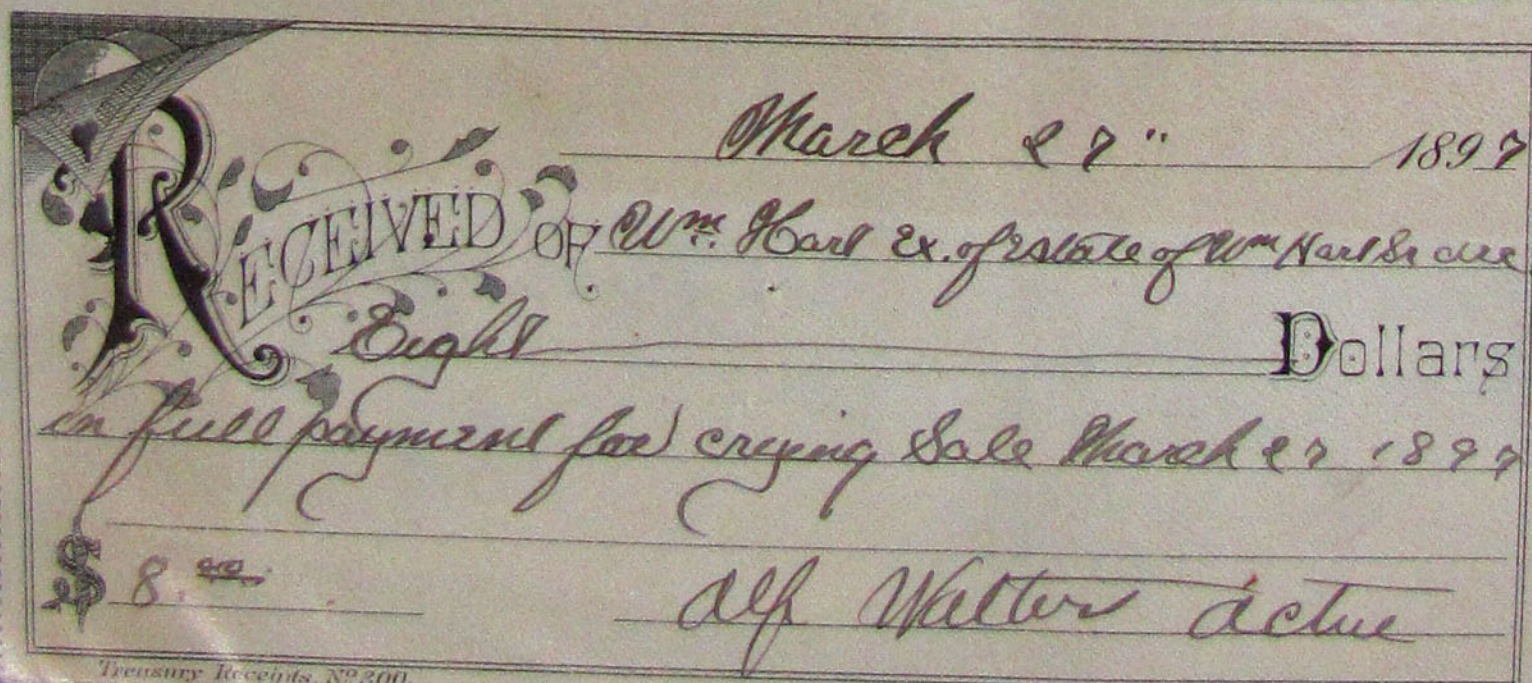 March 27" 1897
RECEIVED OF Wm. Harl Ex. of Estate of Wm Harl Sr
Eight Dollars
in full payment for crying Sale March 27 1897
$ 8.00 Alf Walter
Treasury Receipts, No 200.